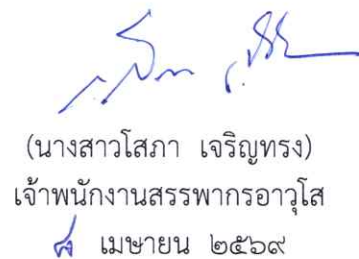 (นางสาวโสภา เจริญทรง)
เจ้าพนักงานสรรพากรอาวุโส
เมษายน ๒๕๖๙